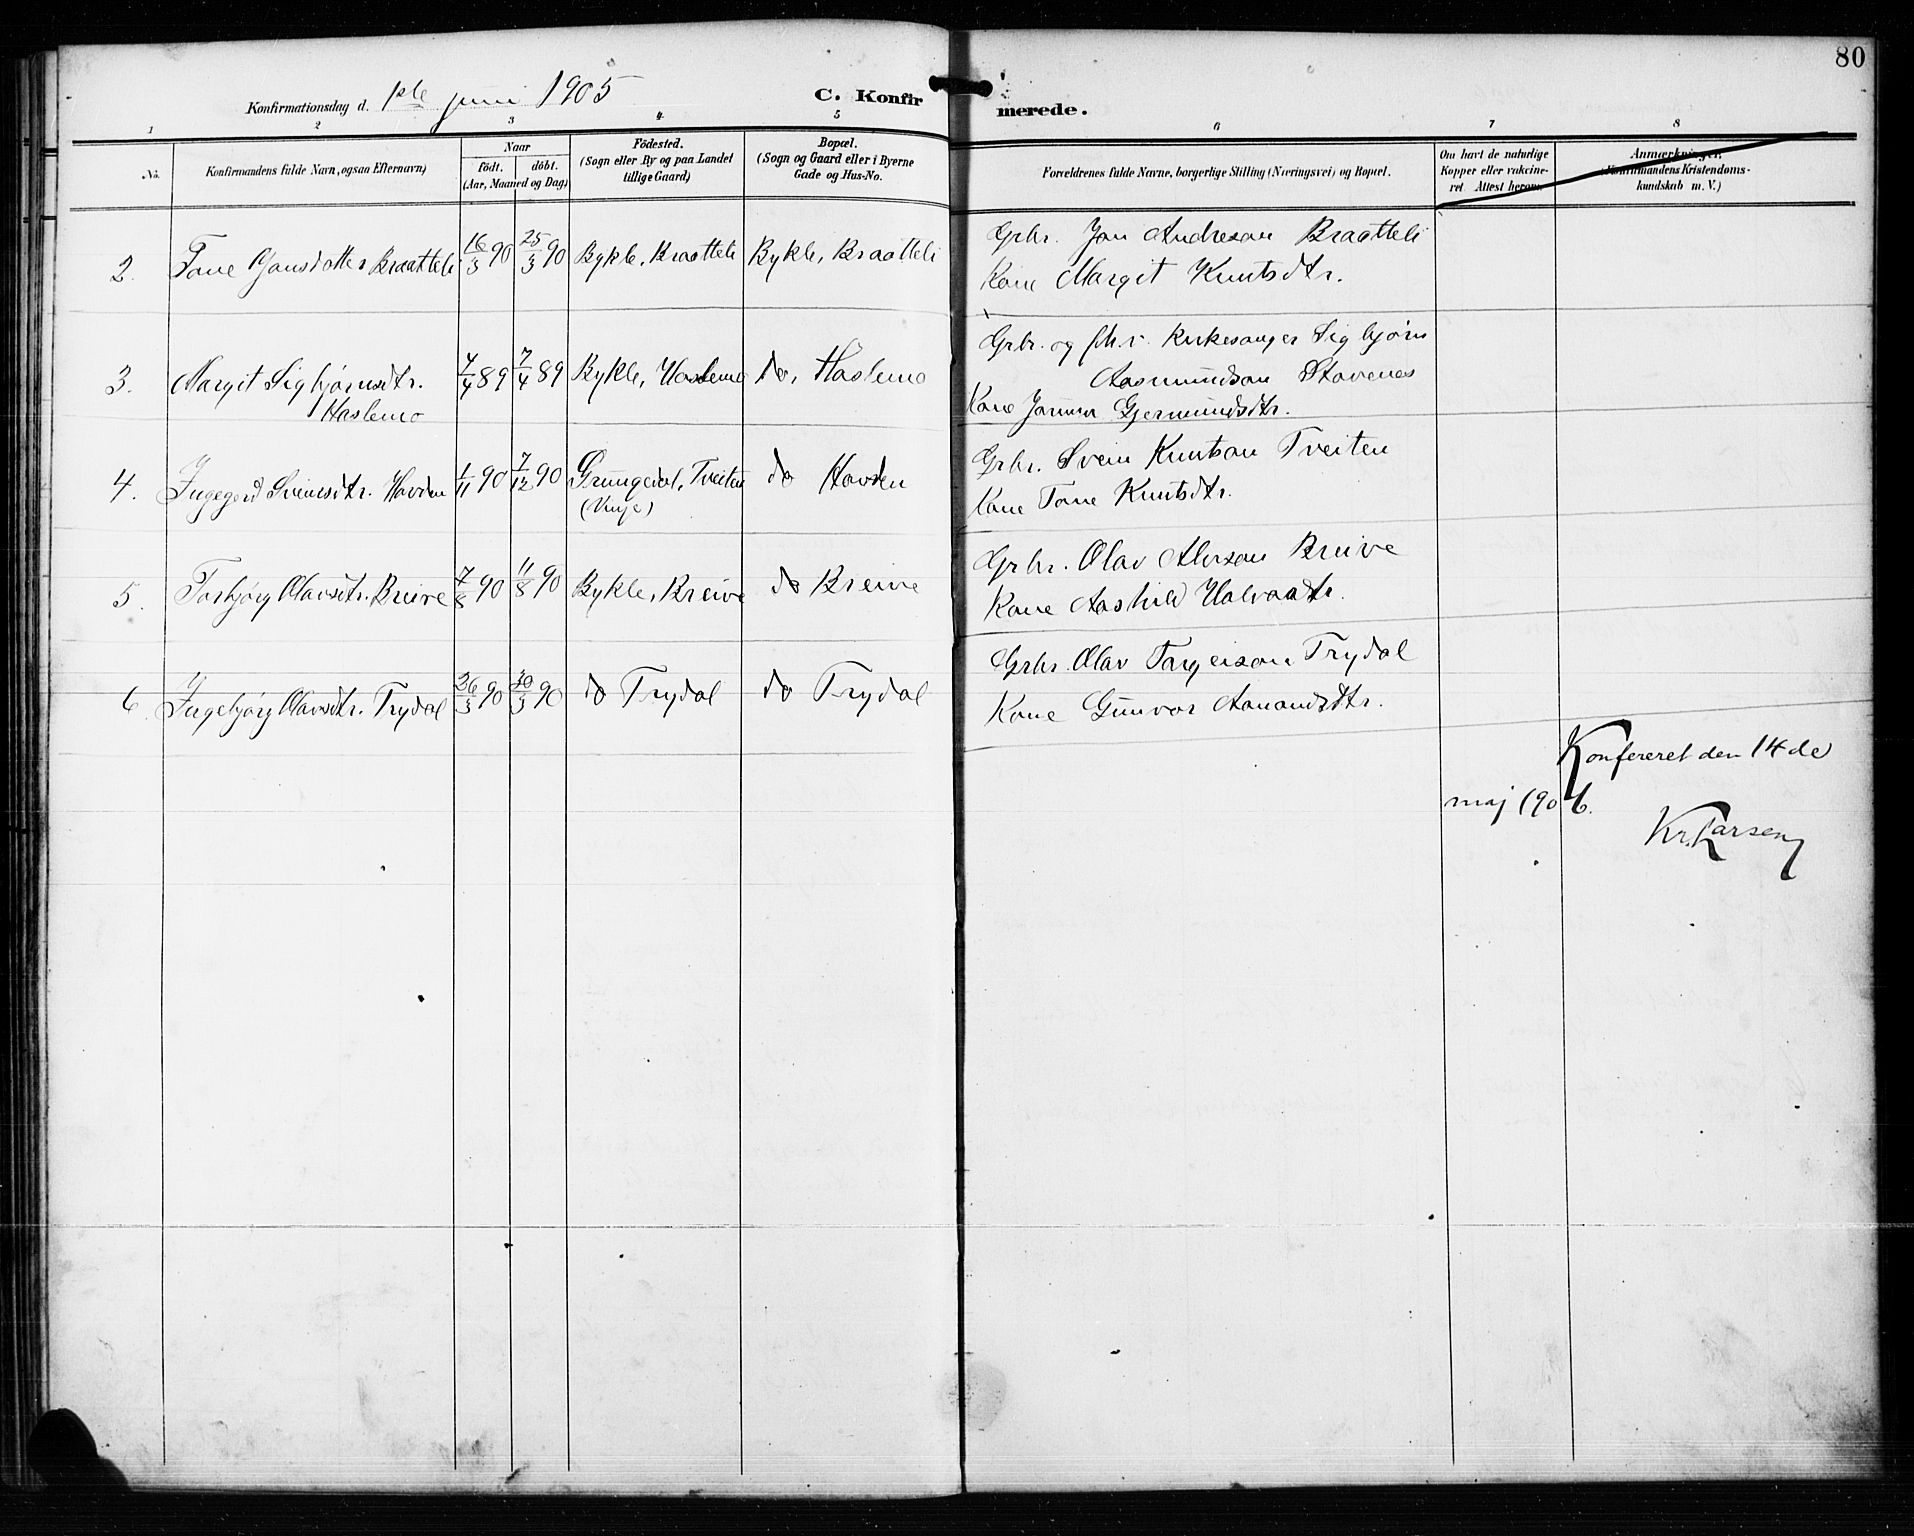 80
Konfirmationsdag d. 1ste juni 1905
C. Konfirmerede.
1 2 3 4 5 6 7 8
No.
Konfirmandens fulde Navn, ogsaa Efternavn)
Naar
födt. döbt.
(Aar, Maaned og Dag)
Födested.
(Sogn eller By og paa Landet
tillige Gaard)
Bopæl.
(Sogn og Gaard eller i Byerne
Gade og Hus-No.
Forældrenes fulde Navne, borgerlige Stilling (Næringsvei) og Bopæl.
Om havt de naturlige
Kopper eller vakcine-
ret. Attest herom.
Anmærkninger.
(Konfirmandens Kristendoms-
kundskab m. V.)
2. Tone Jonsdotter Braatteli 16/3 90 25/3 90 Bykle, Braatteli Bykle, Braatteli Grbr. Jon Andreson Braatteli
Kone Margit Knutsdtr.
3. Margit Sigbjørnsdtr. 4/4 89 7/4 89 Bykle, Haslemo do, Haslemo Grbr. og fhv. kirkesanger Sigbjørn
Haslemo Aasmundson Stavenes
Kone Jorunn Gjermundsdtr.
4. Ingegerd Sveinsdtr. Hovden 1/11 90 7/12 90 Grungedal, Tveiten do Hovden Grbr. Svein Knutson Tveiten
(Vinje) Kone Tone Knutsdtr.
5. Torbjørg Olavsdtr. Breive 7/8 90 11/8 90 Bykle, Breive do Breive Grbr. Olav Alvson Breive
Kone Aashild Halvardtr.
6. Ingebjørg Olavsdtr. Trydal 26/3 90 30/3 90 do Trydal do Trydal Grbr. Olav Targeison Trydal
Kone Gunvor Aanundsdtr.
Konfereret den 14de
maj 1906.
Kr. Larsen